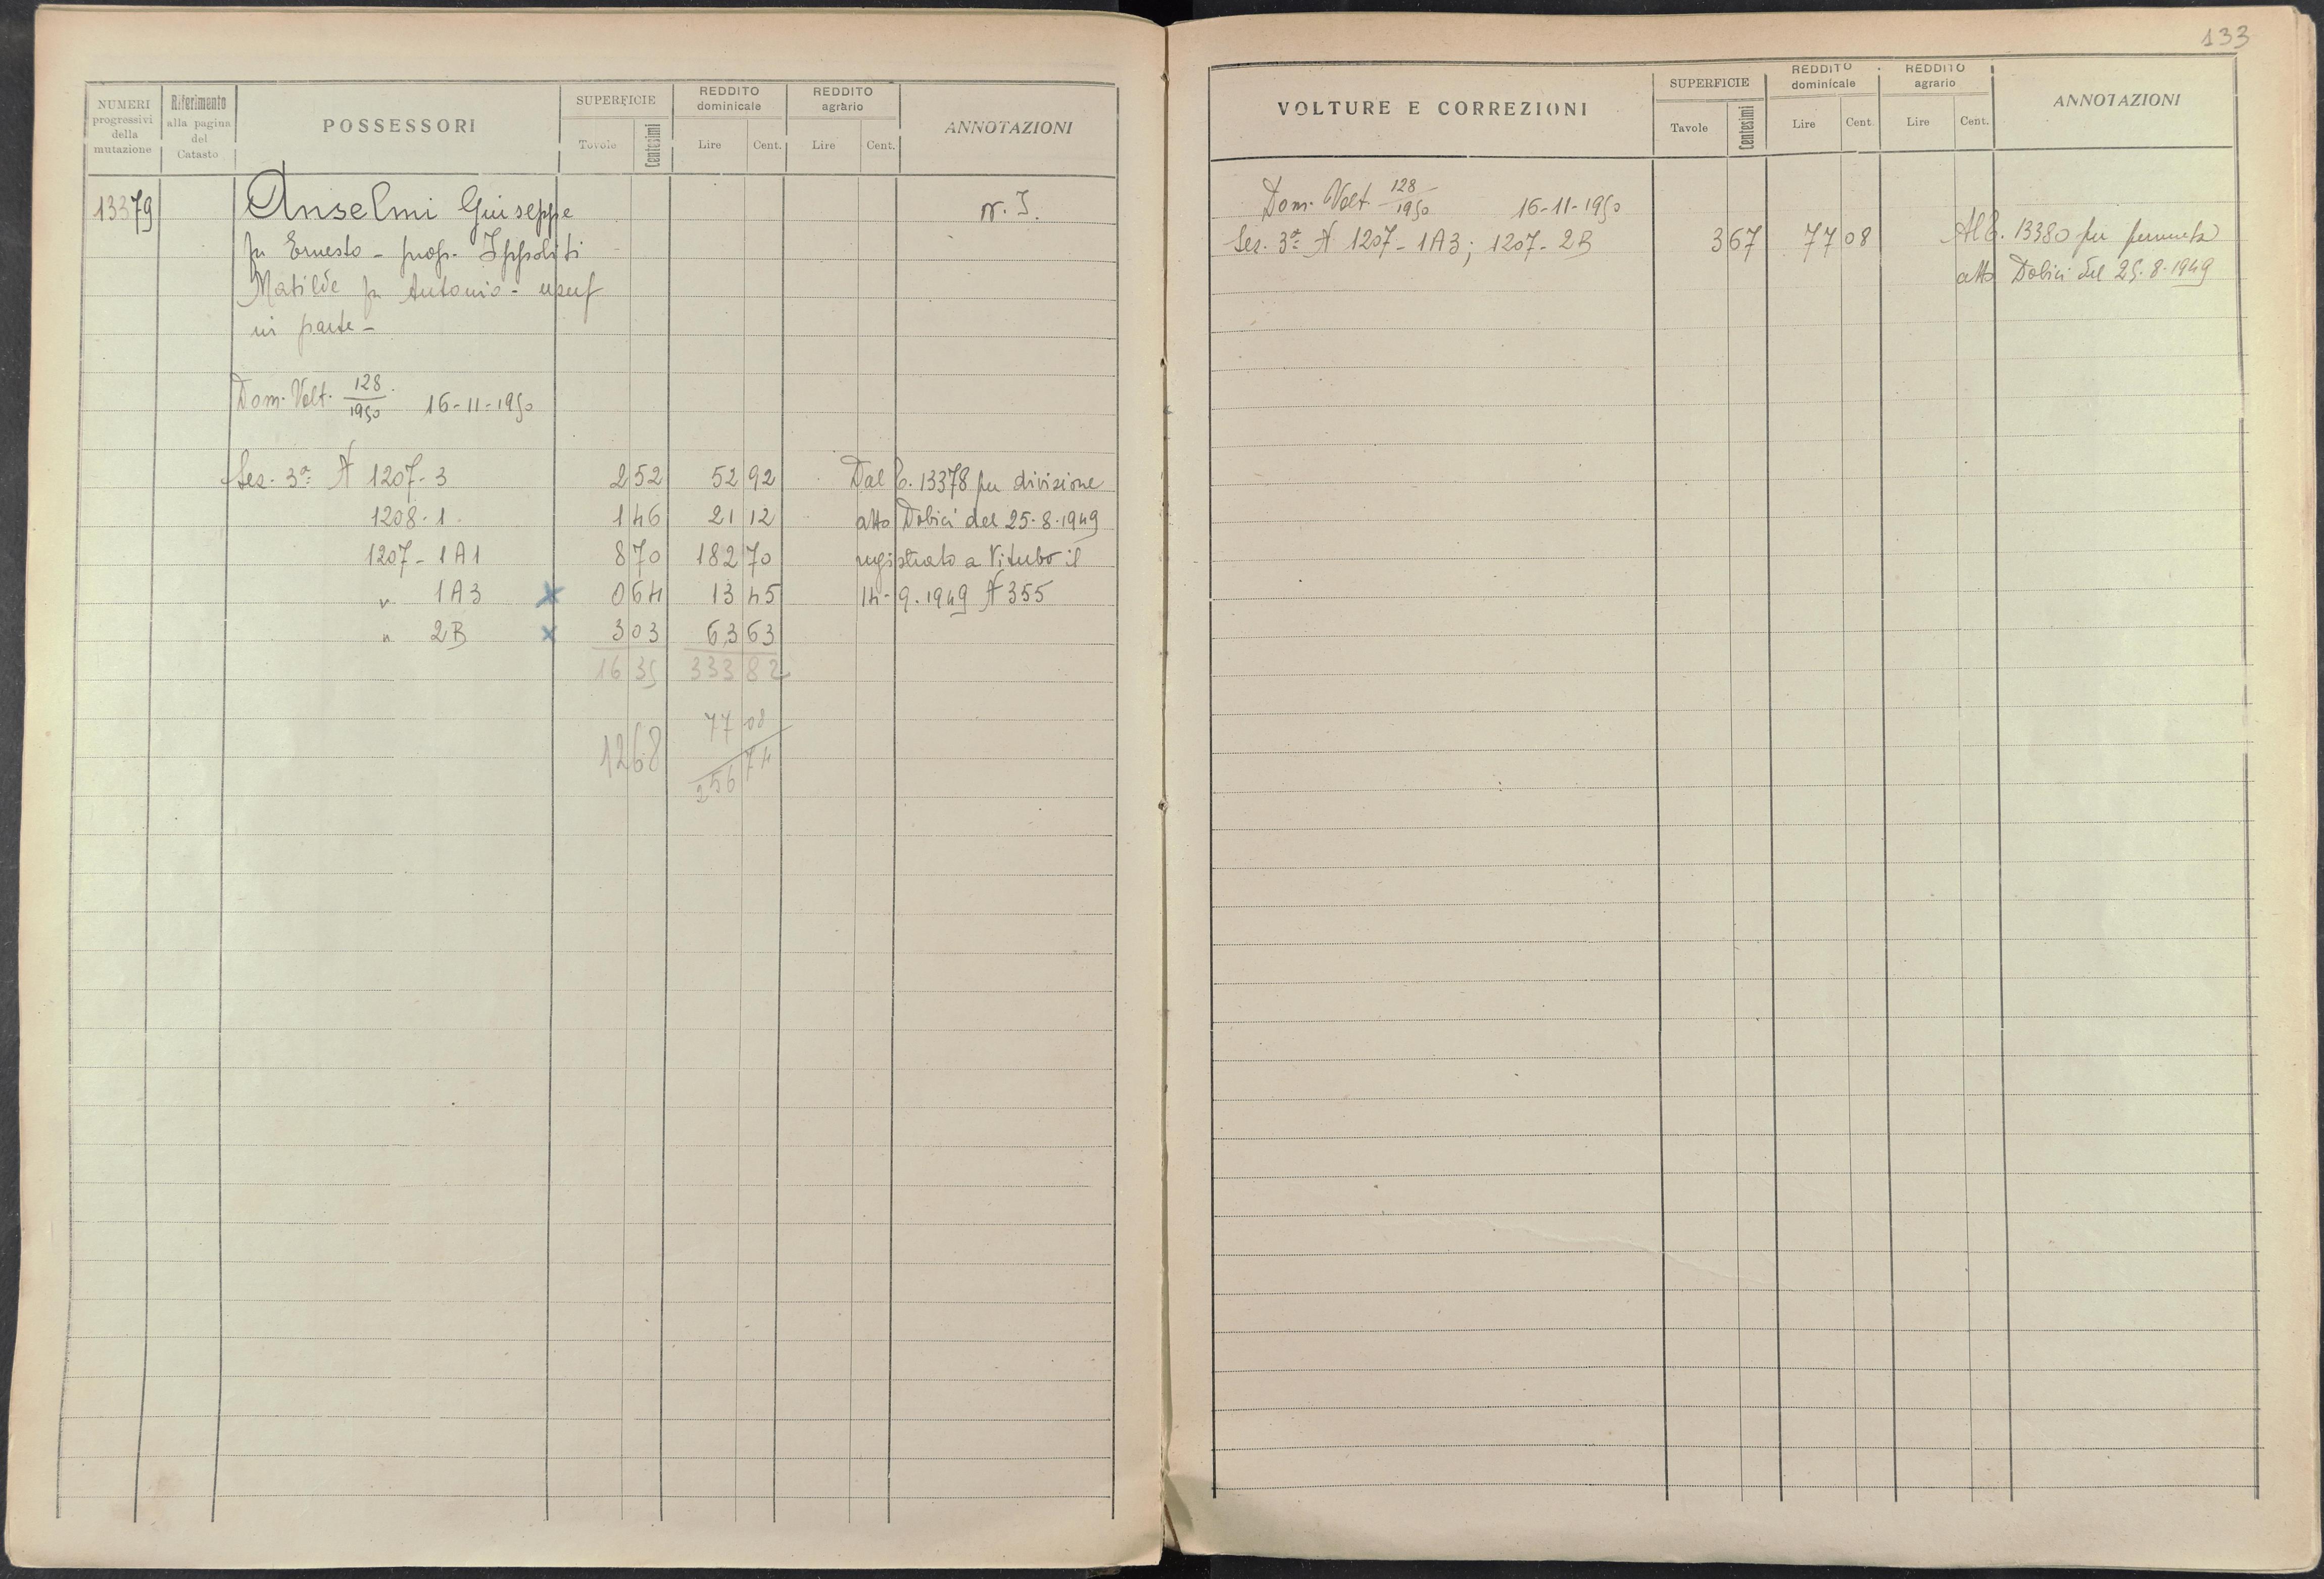 133
NUMERI progressivi della mutazione
Riferimento alla pagina del Catasto
POSSESSORI
SUPERFICIE
Tavole
Centesimi
REDDITO dominicale
Lire
Cent.
REDDITO agrario
Lire
Cent.
ANNOTAZIONI
13379 Anselmi Giuseppe
fu Ernesto - prop. Ippoliti
Matilde fu Antonio - usuf
in parte -
Dom. Volt. 128/1950 16-11-1950
Sez. 3ª N 1207-3 2 52 52 92 Dal C. 13378 per divisione
1208-1 1 46 21 12 atto Dobici del 25-8-1949
1207-1A1 8 70 182 70 registrato a Viterbo il
" 1A3 x 0 64 13 45 14-9-1949 N 355
" 2B x 3 03 63 63
16 35 333 82
77 08
1268
256 74
VOLTURE E CORREZIONI
SUPERFICIE
Tavole
Centesimi
REDDITO dominicale
Lire
Cent.
REDDITO agrario
Lire
Cent.
ANNOTAZIONI
Dom. Volt. 128/1950 16-11-1950
Sez. 3ª N 1207-1A3; 1207-2B 3 67 77 08 Al C. 13380 per permuta
atto Dobici del 25-8-1949